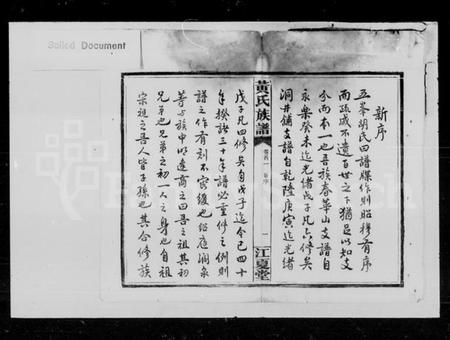 Soiled Document
新序
五峯胡氏四譜牒作則昭穆有序
而疏戚不遺百世之下猶足以知支
分而本一也吾族泰華山支譜自
永樂癸未迄光緒戊子凡六修矣
洞井鋪支譜自乾隆庚寅迄光緒
黃氏族譜
卷首一 新序
一
江夏堂
戊子凡四修矣自戊子迄今已四十
年揆諸三十年譜必重修之例則
譜之作有刻不容緩也紹庭潤泉
等與族中明達商之曰吾之祖其初
兄弟也兄弟之初一人之身也自祖
宗視之吾人皆子孫也其合修族